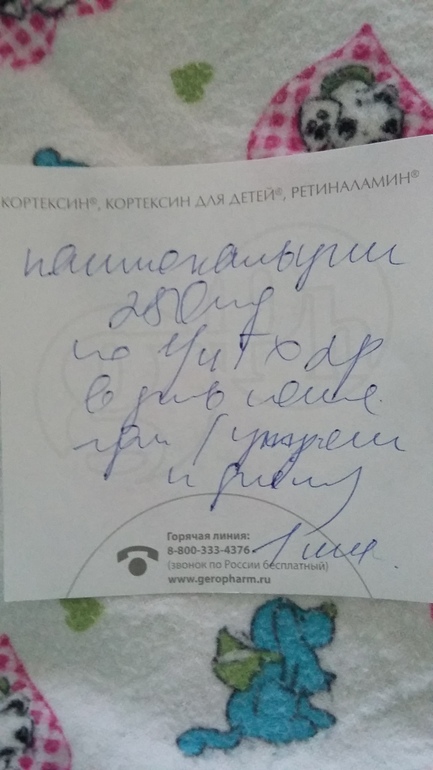 КОРТЕКСИН®, КОРТЕКСИН ДЛЯ ДЕТЕЙ®, РЕТИНАЛАМИН®
250 mg
по 1/4 т х 2р
в день
утром
и днем)
1 мес.
Горячая линия:
8-800-333-4376
(звонок по России бесплатный)
www.geropharm.ru